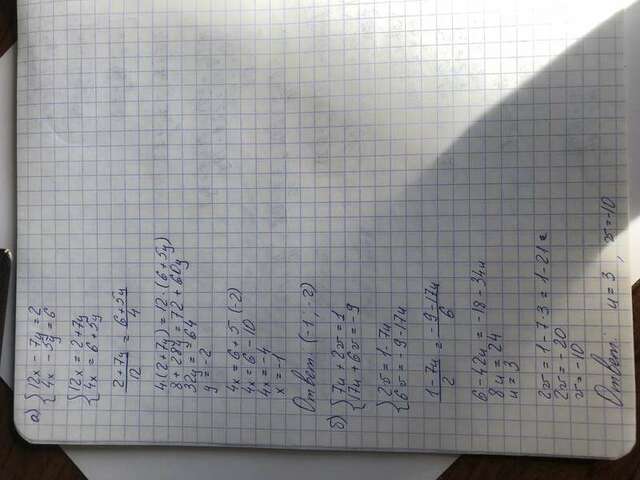 а) { 12x - 7y = 2
4x - 5y = 6
{ 12x = 2 + 7y
4x = 6 + 5y
2 + 7y / 12 = 6 + 5y / 4
4 (2 + 7y) = 12 (6 + 5y)
8 + 28y = 72 + 60y
32y = -64
y = -2
4x = 6 + 5 (-2)
4x = 6 - 10
4x = -4
x = -1
Ответ (-1; -2)
б) { 7u + 2v = 1
17u + 6v = -9
{ 2v = 1 - 7u
6v = -9 - 17u
1 - 7u / 2 = -9 - 17u / 6
6 - 42u = -18 - 34u
8u = 24
u = 3
2v = 1 - 7·3 = 1 - 21
2v = -20
v = -10
Ответ: u = 3, v = -10